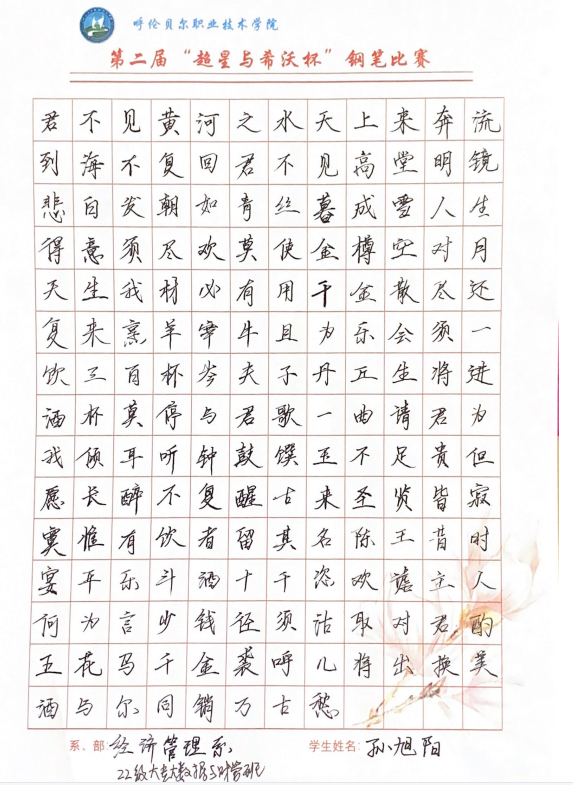 呼伦贝尔职业技术学院
第二届“超星与希沃杯”钢笔比赛
君不见黄河之水天上来奔流
到海不复回君不见高堂明镜
悲白发朝如青丝暮成雪人生
得意须尽欢莫使金樽空对月
天生我材必有用千金散尽还
复来烹羊宰牛且为乐会须一
饮三百杯岑夫子丹丘生将进
酒杯莫停与君歌一曲请君为
我倾耳听钟鼓馔玉不足贵但
愿长醉不复醒古来圣贤皆寂
寞惟有饮者留其名陈王昔时
宴平乐斗酒十千恣欢谑主人
何为言少钱径须沽取对君酌
五花马千金裘呼儿将出换美
酒与尔同销万古愁
系、部:经济管理系 学生姓名:孙旭阳
22级大专大数据与财管班